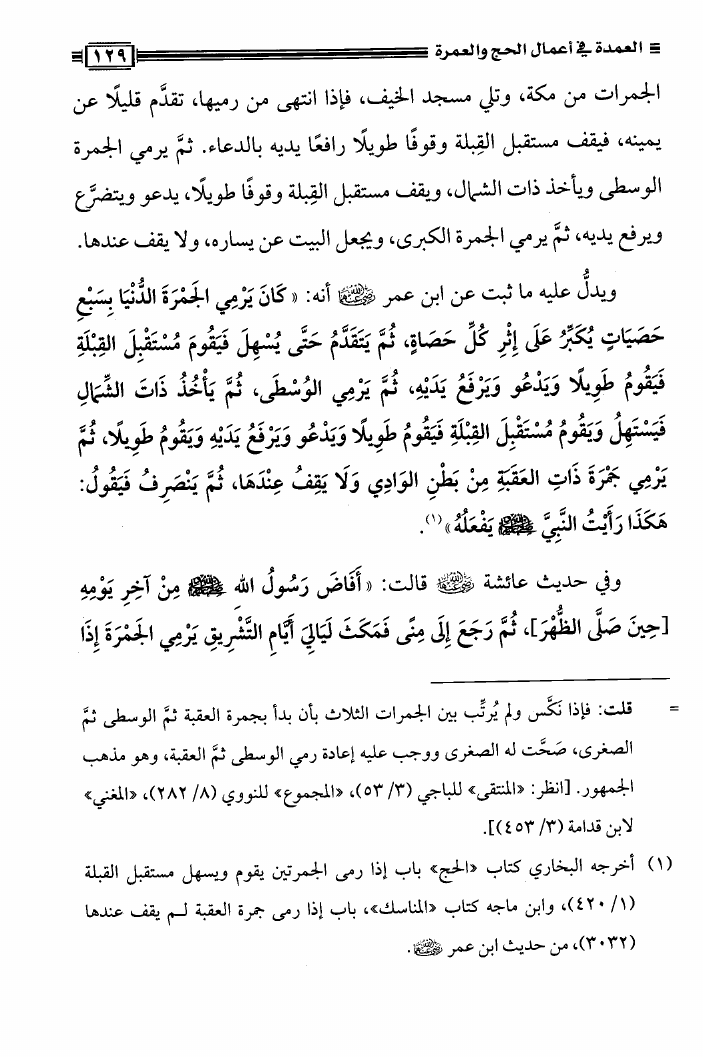 العمدة في أعمال الحج والعمرة
١٢٩
الجمرات من مكة، وتلي مسجد الخيف، فإذا انتهى من رميها، تقدَّم قليلًا عن
يمينه، فيقف مستقبل القِبلة وقوفًا طويلًا رافعًا يديه بالدعاء. ثمَّ يرمي الجمرة
الوسطى ويأخذ ذات الشمال، ويقف مستقبل القِبلة وقوفًا طويلًا، يدعو ويتضرَّع
ويرفع يديه، ثمَّ يرمي الجمرة الكبرى، ويجعل البيت عن يساره، ولا يقف عندها.
ويدلُّ عليه ما ثبت عن ابن عمر رضي الله عنهما أنه: «كَانَ يَرْمِي الجَمْرَةَ الدُّنْيَا بِسَبْعِ
حَصَيَاتٍ يُكَبِّرُ عَلَى إِثْرِ كُلِّ حَصَاةٍ، ثُمَّ يَتَقَدَّمُ حَتَّى يُسْهِلَ فَيَقُومَ مُسْتَقْبِلَ القِبْلَةِ
فَيَقُومُ طَوِيلًا وَيَدْعُو وَيَرْفَعُ يَدَيْهِ، ثُمَّ يَرْمِي الوُسْطَى، ثُمَّ يَأْخُذُ ذَاتَ الشِّمَالِ
فَيَسْتَهِلُ وَيَقُومُ مُسْتَقْبِلَ القِبْلَةِ فَيَقُومُ طَوِيلًا وَيَدْعُو وَيَرْفَعُ يَدَيْهِ وَيَقُومُ طَوِيلًا، ثُمَّ
يَرْمِي جَمْرَةَ ذَاتِ العَقَبَةِ مِنْ بَطْنِ الوَادِي وَلَا يَقِفُ عِنْدَهَا، ثُمَّ يَنْصَرِفُ فَيَقُولُ:
هَكَذَا رَأَيْتُ النَّبِيَّ ﷺ يَفْعَلُهُ»(١).
وفي حديث عائشة رضي الله عنها قالت: «أَفَاضَ رَسُولُ اللهِ ﷺ مِنْ آخِرِ يَوْمِهِ
[حِينَ صَلَّى الظُّهْرَ]، ثُمَّ رَجَعَ إِلَى مِنًى فَمَكَثَ لَيَالِيَ أَيَّامِ التَّشْرِيقِ يَرْمِي الجَمْرَةَ إِذَا
= قلت: فإذا نكَّس ولم يُرتِّب بين الجمرات الثلاث بأن بدأ بجمرة العقبة ثمَّ الوسطى ثمَّ
الصغرى، صَحَّت له الصغرى ووجب عليه إعادة رمي الوسطى ثمَّ العقبة، وهو مذهب
الجمهور. [انظر: «المنتقى» للباجي (٣/ ٥٣)، «المجموع» للنووي (٨/ ٢٨٢)، «المغني»
لابن قدامة (٣/ ٤٥٣)].
(١) أخرجه البخاري كتاب «الحج» باب إذا رمى الجمرتين يقوم ويسهل مستقبل القبلة
(١/ ٤٢٠)، وابن ماجه كتاب «المناسك»، باب إذا رمى جمرة العقبة لم يقف عندها
(٣٠٣٢)، من حديث ابن عمر رضي الله عنهما.